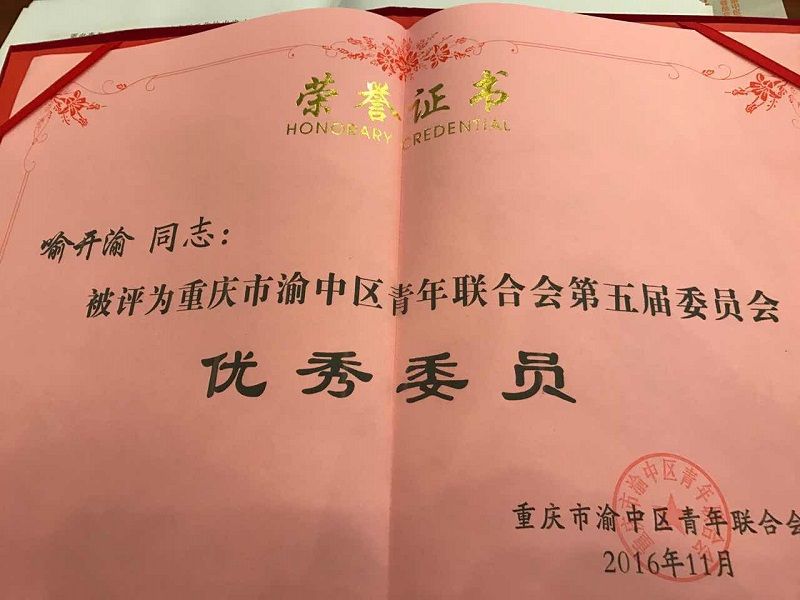 荣誉证书
HONORARY CREDENTIAL
喻开渝 同志：
被评为重庆市渝中区青年联合会第五届委员会
优秀委员
重庆市渝中区青年联合会
2016年11月